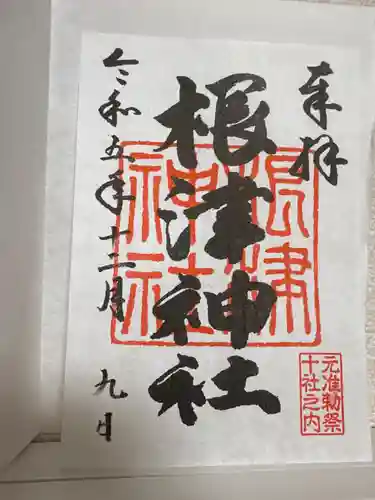 奉拝
根津神社
根津
神社
元准勅祭
十社之内
令和五年十二月九日